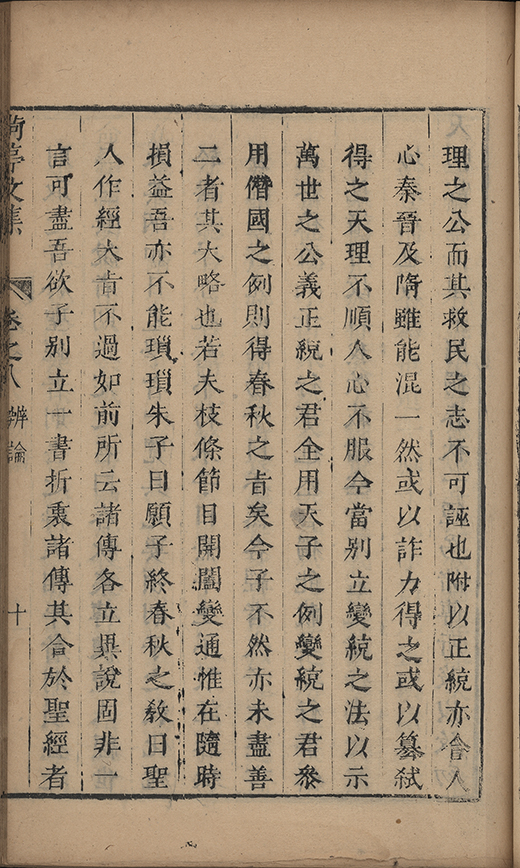 理之公而其救民之志不可誣也附以正統亦合人
心秦晉及隋雖能混一然或以詐力得之或以簒弑
得之天理不順人心不服今當别立變統之法以示
萬世之公義正統之君全用天子之例變統之君參
用僭國之例則得春秋之㫖矣今子不然亦未盡善
二者其大略也若夫枝條節目開闔變通惟在隨時
損益吾亦不能瑣瑣朱子曰願子終春秋之敎曰聖
人作經大㫖不過如前所云諸傳各立異說固非一
言可盡吾欲子别立一書折衷諸傳其合於聖經者
文集 卷之八 辨論 十